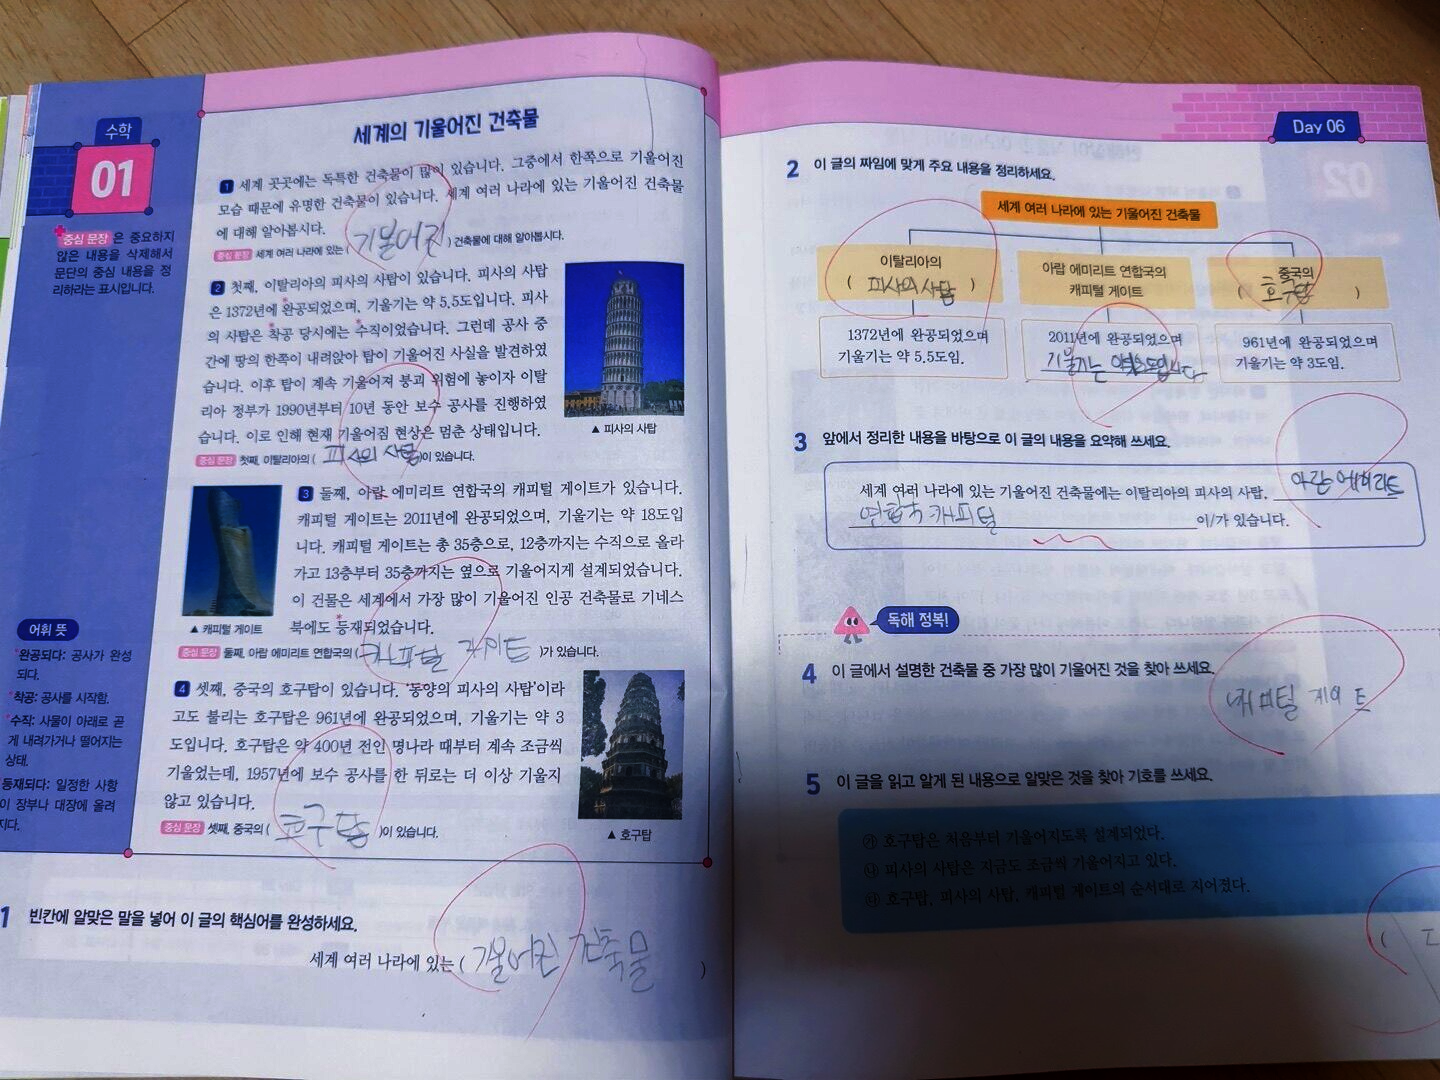 수학
01
중심 문장 은 중요하지
않은 내용을 삭제해서
문단의 중심 내용을 정
리하라는 표시입니다.
어휘 뜻
*완공되다: 공사가 완성
되다.
*착공: 공사를 시작함.
*수직: 사물이 아래로 곧
게 내려가거나 떨어지는
상태.
등재되다: 일정한 사항
이 장부나 대장에 올려
지다.
세계의 기울어진 건축물
1 세계 곳곳에는 독특한 건축물이 많이 있습니다. 그중에서 한쪽으로 기울어진
모습 때문에 유명한 건축물이 있습니다. 세계 여러 나라에 있는 기울어진 건축물
에 대해 알아봅시다.
중심 문장 세계 여러 나라에 있는 ( 기울어진 ) 건축물에 대해 알아봅시다.
2 첫째, 이탈리아의 피사의 사탑이 있습니다. 피사의 사탑
은 1372년에 *완공되었으며, 기울기는 약 5.5도입니다. 피사
의 사탑은 *착공 당시에는 *수직이었습니다. 그런데 공사 중
간에 땅의 한쪽이 내려앉아 탑이 기울어진 사실을 발견하였
습니다. 이후 탑이 계속 기울어져 붕괴 위험에 놓이자 이탈
리아 정부가 1990년부터 10년 동안 보수 공사를 진행하였
습니다. 이로 인해 현재 기울어짐 현상은 멈춘 상태입니다.
중심 문장 첫째, 이탈리아의 ( 피사의 사탑 )이 있습니다.
▲ 피사의 사탑
3 둘째, 아랍 에미리트 연합국의 캐피털 게이트가 있습니다.
캐피털 게이트는 2011년에 완공되었으며, 기울기는 약 18도입
니다. 캐피털 게이트는 총 35층으로, 12층까지는 수직으로 올라
가고 13층부터 35층까지는 옆으로 기울어지게 설계되었습니다.
이 건물은 세계에서 가장 많이 기울어진 인공 건축물로 기네스
북에도 *등재되었습니다.
▲ 캐피털 게이트
중심 문장 둘째, 아랍 에미리트 연합국의 ( 캐피털 게이트 )가 있습니다.
4 셋째, 중국의 호구탑이 있습니다. '동양의 피사의 사탑'이라
고도 불리는 호구탑은 961년에 완공되었으며, 기울기는 약 3
도입니다. 호구탑은 약 400년 전인 명나라 때부터 계속 조금씩
기울었는데, 1957년에 보수 공사를 한 뒤로는 더 이상 기울지
않고 있습니다.
중심 문장 셋째, 중국의 ( 호구탑 )이 있습니다.
▲ 호구탑
1 빈칸에 알맞은 말을 넣어 이 글의 핵심어를 완성하세요.
세계 여러 나라에 있는 ( 기울어진 건축물 )
Day 06
2 이 글의 짜임에 맞게 주요 내용을 정리하세요.
세계 여러 나라에 있는 기울어진 건축물
이탈리아의
( 피사의 사탑 )
아랍 에미리트 연합국의
캐피털 게이트
중국의
( 호구탑 )
1372년에 완공되었으며
기울기는 약 5.5도임.
2011년에 완공되었으며
기울기는
961년에 완공되었으며
기울기는 약 3도임.
3 앞에서 정리한 내용을 바탕으로 이 글의 내용을 요약해 쓰세요.
세계 여러 나라에 있는 기울어진 건축물에는 이탈리아의 피사의 사탑, 아랍 에미리트
연합국 캐피털 이/가 있습니다.
독해 정복!
4 이 글에서 설명한 건축물 중 가장 많이 기울어진 것을 찾아 쓰세요.
캐피털 게이트
5 이 글을 읽고 알게 된 내용으로 알맞은 것을 찾아 기호를 쓰세요.
㉮ 호구탑은 처음부터 기울어지도록 설계되었다.
㉯ 피사의 사탑은 지금도 조금씩 기울어지고 있다.
㉰ 호구탑, 피사의 사탑, 캐피털 게이트의 순서대로 지어졌다.
(